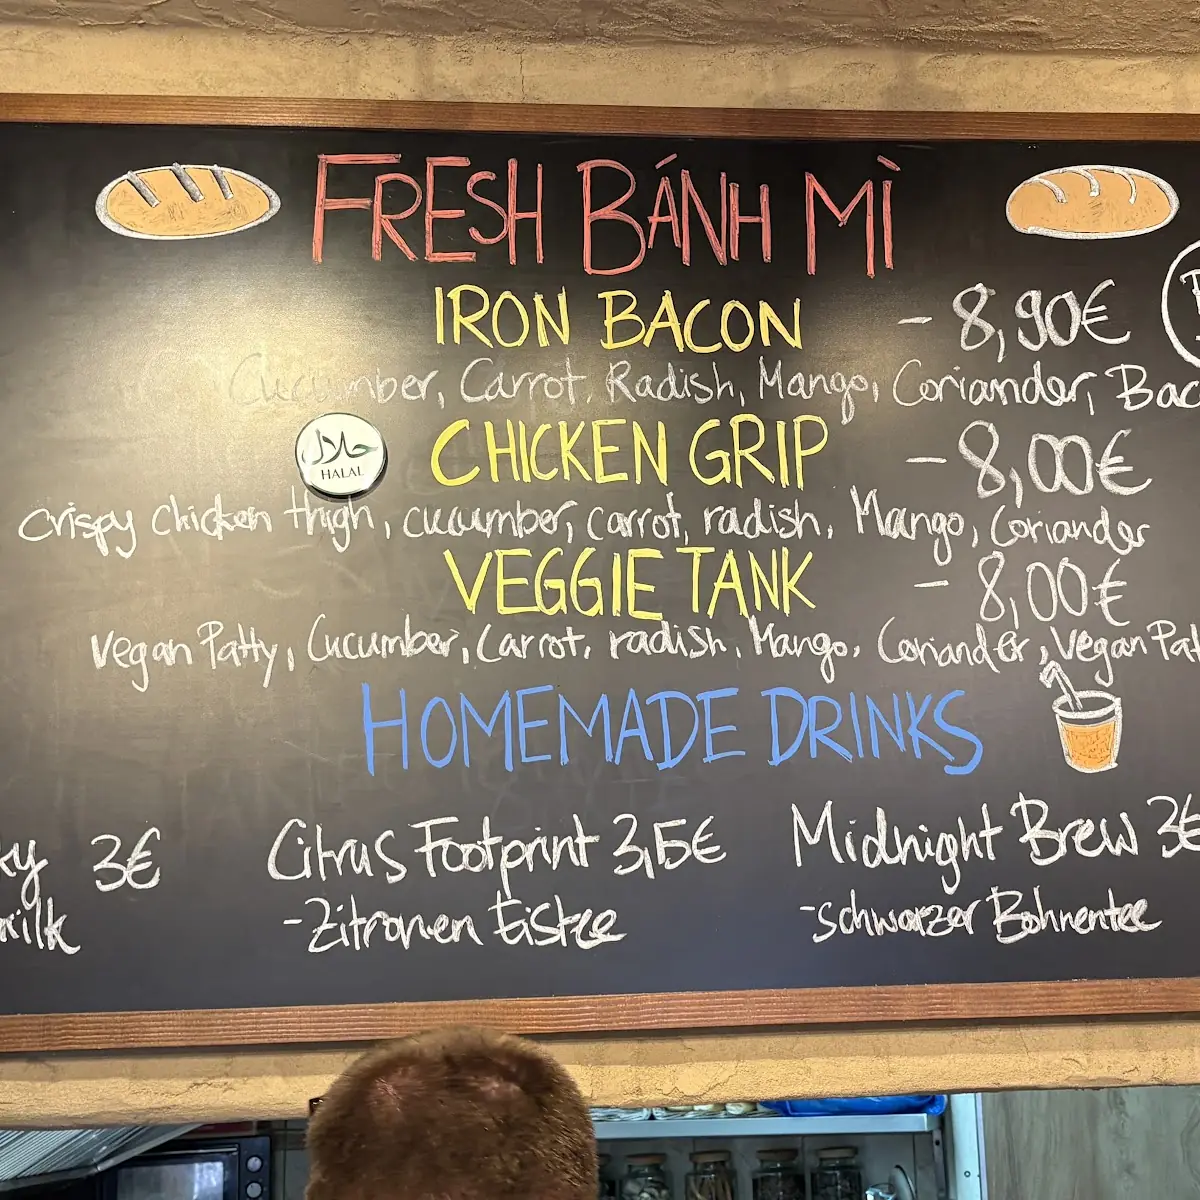 FRESH BÁNH MÌ
IRON BACON - 8,90€
Cucumber, Carrot, Radish, Mango, Coriander,
حلال
HALAL
CHICKEN GRIP - 8,00€
crispy chicken thigh, cucumber, carrot, radish, Mango, Coriander
VEGGIE TANK - 8,00€
Vegan Patty, Cucumber, Carrot, radish, Mango, Coriander, Vegan
HOMEMADE DRINKS
3€ Citrus Footprint 3,5€ Midnight Brew 3€
-Zitronen Eistee -schwarzer Bohnentee